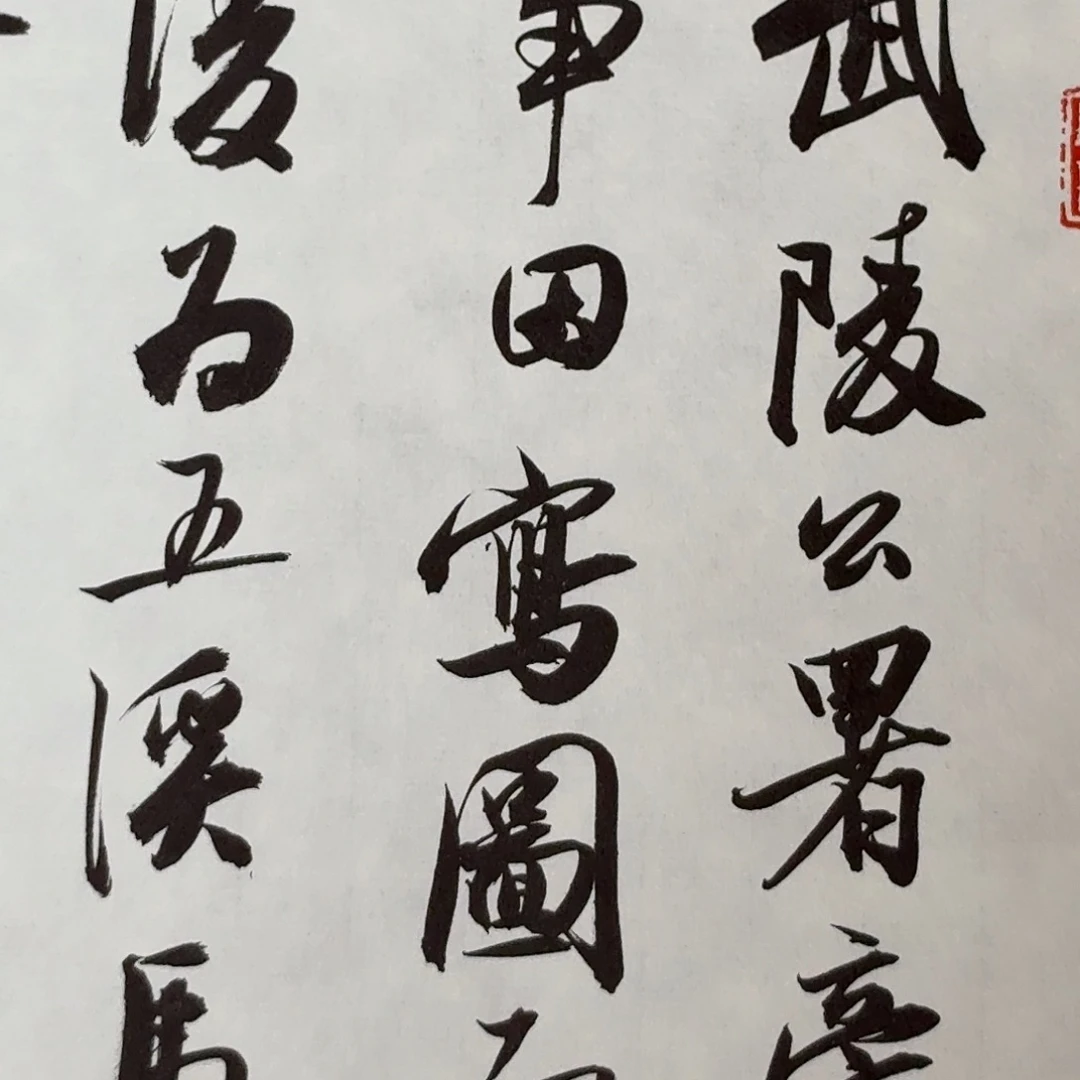 武陵公署
田寫圖
後為五溪馬